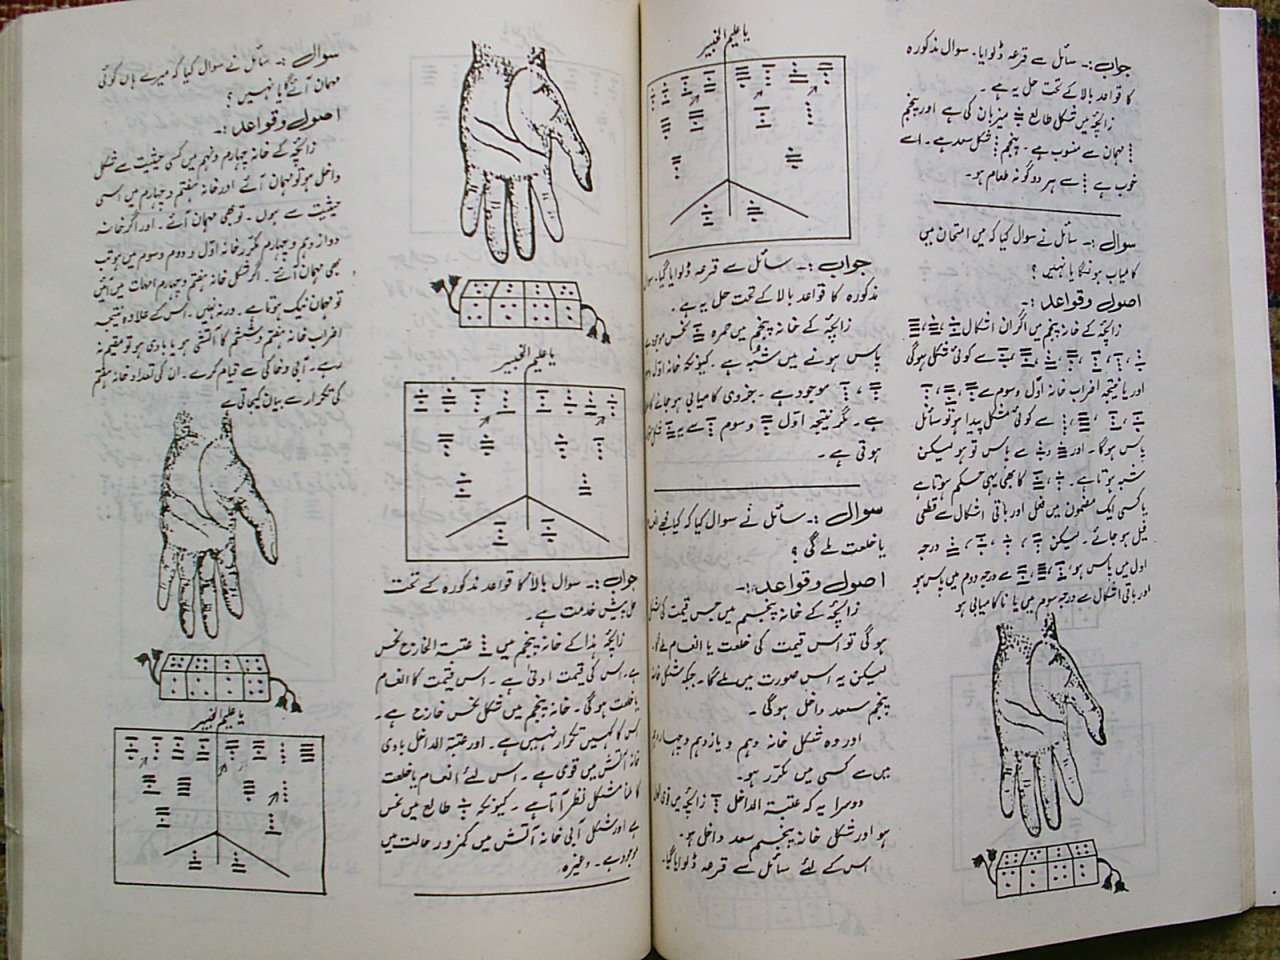 جواب :۔ سائل سے قرعہ ڈلوایا۔ سوال مذکورہ
کا قواعد بالا کے تحت حل یہ ہے ۔
زائچہ میں شکل طالع میزبان کی ہے اور پنجم
مہمان سے منسوب ہے ۔ پنجم شکل سعد ہے۔ اسے
خوب ہے سے ہر دو گونہ طعام ہو۔
سوال :۔ سائل نے سوال کیا کہ میں امتحان میں
کامیاب ہونگا یا نہیں ؟
اصول و قواعد :۔
زائچہ کے خانہ پنجم میں اگر ان اشکال
سے کوئی شکل ہوگی
اور یا نتیجہ افراب خانہ اوّل و سوم سے
سے کوئی شکل پیدا ہو تو سائل
پاس ہوگا۔ اور سے پاس تو ہو لیکن
شبہ ہوتا ہے ۔ کا بھی یہی حکم ہوتا ہے
یا کسی ایک مضمون میں فیل اور باقی اشکال سے قطعی
فیل ہو جائے ۔ لیکن درجہ
اول میں پاس ہو سے درجہ دوم میں پاس ہو
اور باقی اشکال سے درجہ سوم میں یا ناکامیابی ہو
یا علیم الخبیر
جواب :۔ سائل سے قرعہ ڈلوایا گیا۔ سوال
مذکورہ کا قواعد بالا کے تحت حل یہ ہے ۔
زائچہ کے خانہ پنجم میں حمرہ نحس موجود ہے
پاس ہونے میں شبہ ہے ۔ کیونکہ خانہ اوّل
موجود ہے ۔ جزوی کامیابی ہو جانے کا
ہے ۔ مگر نتیجہ اوّل و سوم سے یہ
ہوتی ہے ۔
سوال :۔ سائل نے سوال کیا کہ کیا مجھے انعام
یا خلعت ملے گی ؟
اصول و قواعد :۔
زائچہ کے خانہ پنجم میں جس قیمت کی شکل
ہو گی تو اس قیمت کی خلعت یا انعام ملے گا۔
لیکن یہ اس صورت میں ملے گا۔ جبکہ شکل خانہ
پنجم سعد داخل ہو گی ۔
اور وہ شکل خانہ دہم و یازدہم و چہاردہم
میں سے کسی میں مکرر ہو۔
دوسرا یہ کہ عتبۃ الداخل زائچہ میں قوی
ہو اور شکل خانہ پنجم سعد داخل ہو۔
اس کے لئے سائل سے قرعہ ڈلوایا گیا۔
یا علیم الخبیر
جواب :۔ سوال بالا کا قواعد مذکورہ کے تحت
حل پیش خدمت ہے ۔
زائچہ ہذا کے خانہ پنجم میں عتبۃ الخارج نحس
ہے۔ اس کی قیمت ادنیٰ ہے ۔ اس قیمت کا انعام
یا خلعت ہو گی ۔ خانہ پنجم میں شکل نحس خارج ہے ۔
اس کا کہیں تکرار نہیں ہے ۔ اور عتبۃ الداخل بادی
خانہ آتش میں قوی ہے ۔ اس لئے انعام یا خلعت
کا ملنا مشکل نظر آتا ہے ۔ کیونکہ طالع میں نحس
ہے اور شکل آبی خانہ آتش میں کمزور حالت میں
موجود ہے ۔ وغیرہ
سوال :۔ سائل نے سوال کیا کہ میرے ہاں کوئی
مہمان آئے گا یا نہیں ؟
اصول و قواعد :۔
زائچہ کے خانہ چہارم و نہم میں کسی حیثیت سے شکل
داخل ہو تو مہمان آئے اور خانہ ہفتم و چہارم میں اسی
حیثیت سے ہوں ۔ تو بھی مہمان آئے ۔ اور اگر خانہ
دوازدہم و چہارم مکرر خانہ اوّل و دوم و سوم میں ہو تب
بھی مہمان آئے ۔ اگر شکل خانہ ہفتم و چہارم امہات میں ہیں
تو مہمان نیک ہوتا ہے ۔ ورنہ نہیں ۔ اس کے علاوہ نتیجہ
افراب خانہ ہفتم و ششم کا آتشی ہو یا بادی ہو تو مقیم نہ
رہے ۔ آبی و خاکی سے قیام کرے ۔ ان کی تعداد خانہ ہفتم
کی تکرار سے بیان کیجاتی ہے
یا علیم الخبیر